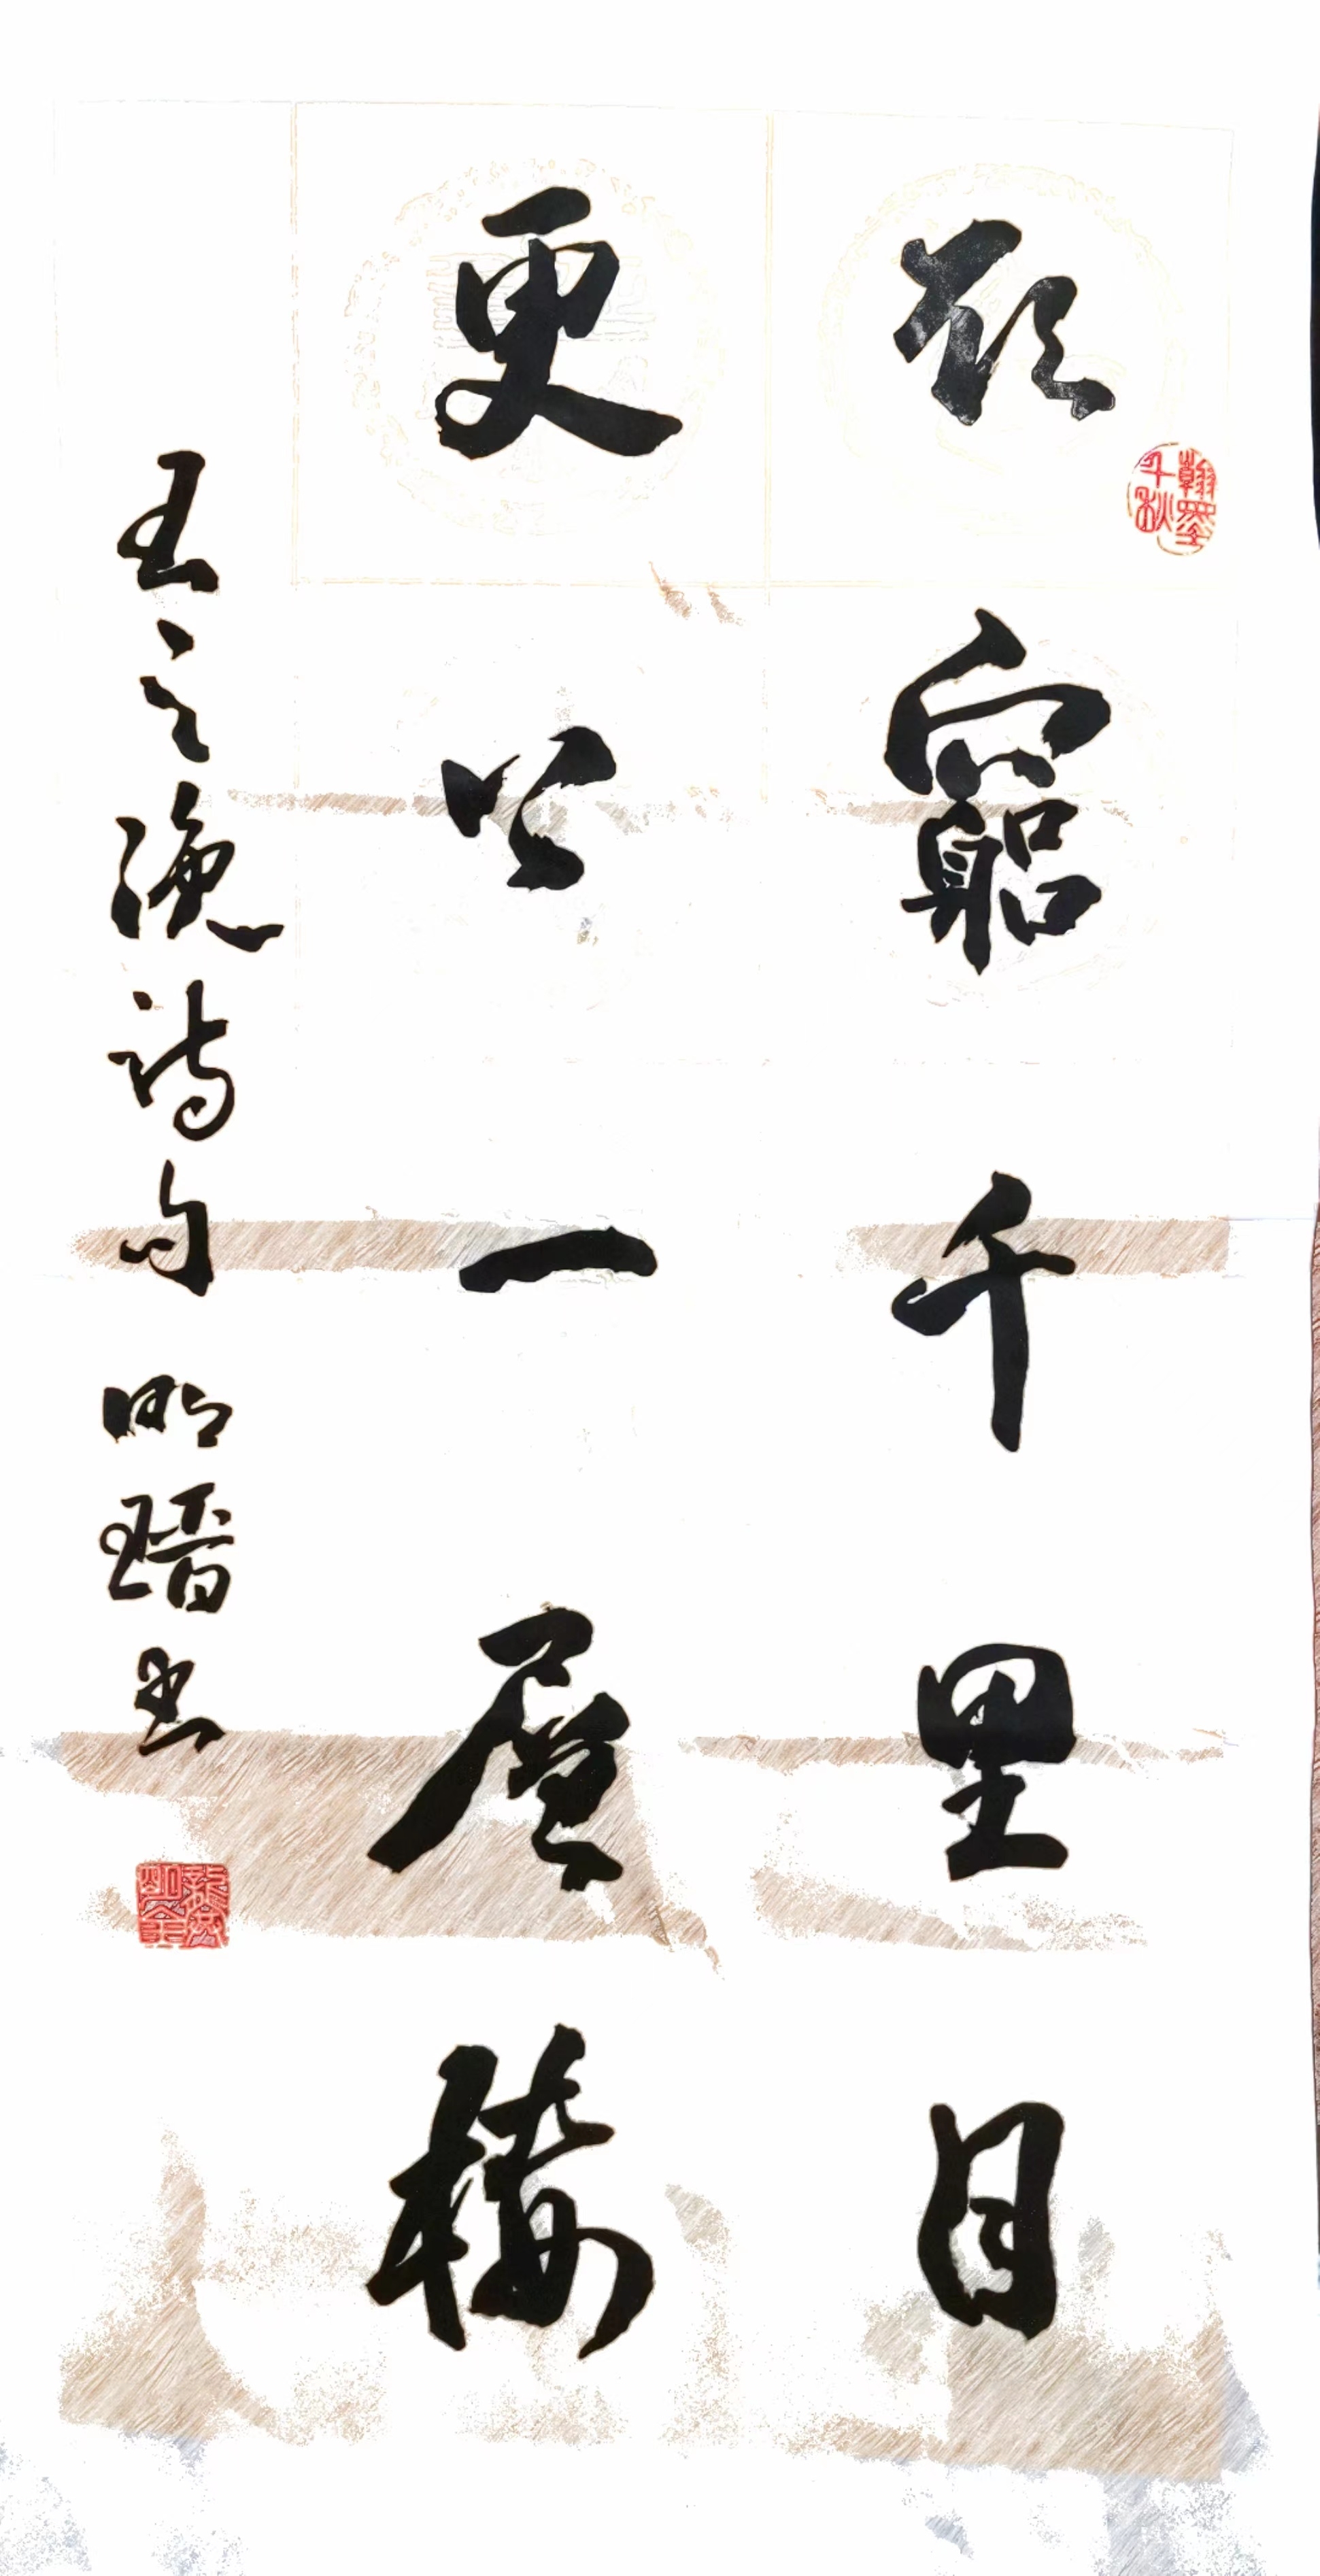 欲窮千里目
更上一層樓
王之渙詩句 明瑨书
翰墨千秋